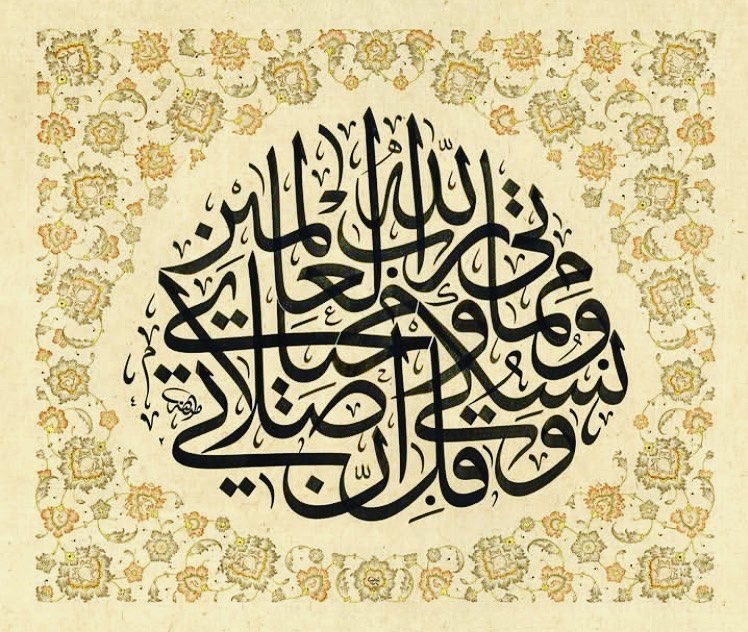 قل إنّ صلاتي ونسكي ومحياي ومماتي للّه رب العالمين